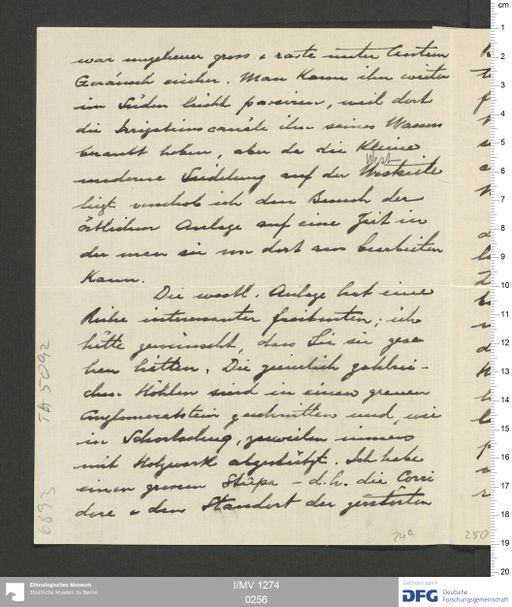 war ungeheuer gross & raste unter lautem
Geräusch einher. Man kann ihn weiter
im Süden leicht passiren, weil dort
die Irrigationscanäle ihn seines Wassers
beraubt haben, aber da die kleine
moderne Siedelung auf der Westseite
West
liegt verschob ich den Besuch der
östlichen Anlage auf eine Zeit in
der man sie von dort aus bearbeiten
kann.
Die westl. Anlage hat eine
Reihe interessanter Freibauten; ich
hätte gewünscht, dass Sie sie gese
hen hätten. Die ziemlich zahlrei-
chen Höhlen sind in einen grauen
Conglomeratstein geschnitten und, wie
in Schortschug, zuweilen innen
mit Holzwerk abgestützt. Ich habe
einen grossen Stūpa - d.h. die Corri
dore & den Standort der zerstörten
TA 5092
6893
249
250
cm
1
2
3
4
5
6
7
8
9
10
11
12
13
14
15
16
17
18
19
20
Ethnologisches Museum
Staatliche Museen zu Berlin
I/MV 1274
0256
Gefördert durch
DFG Deutsche
Forschungsgemeinschaft